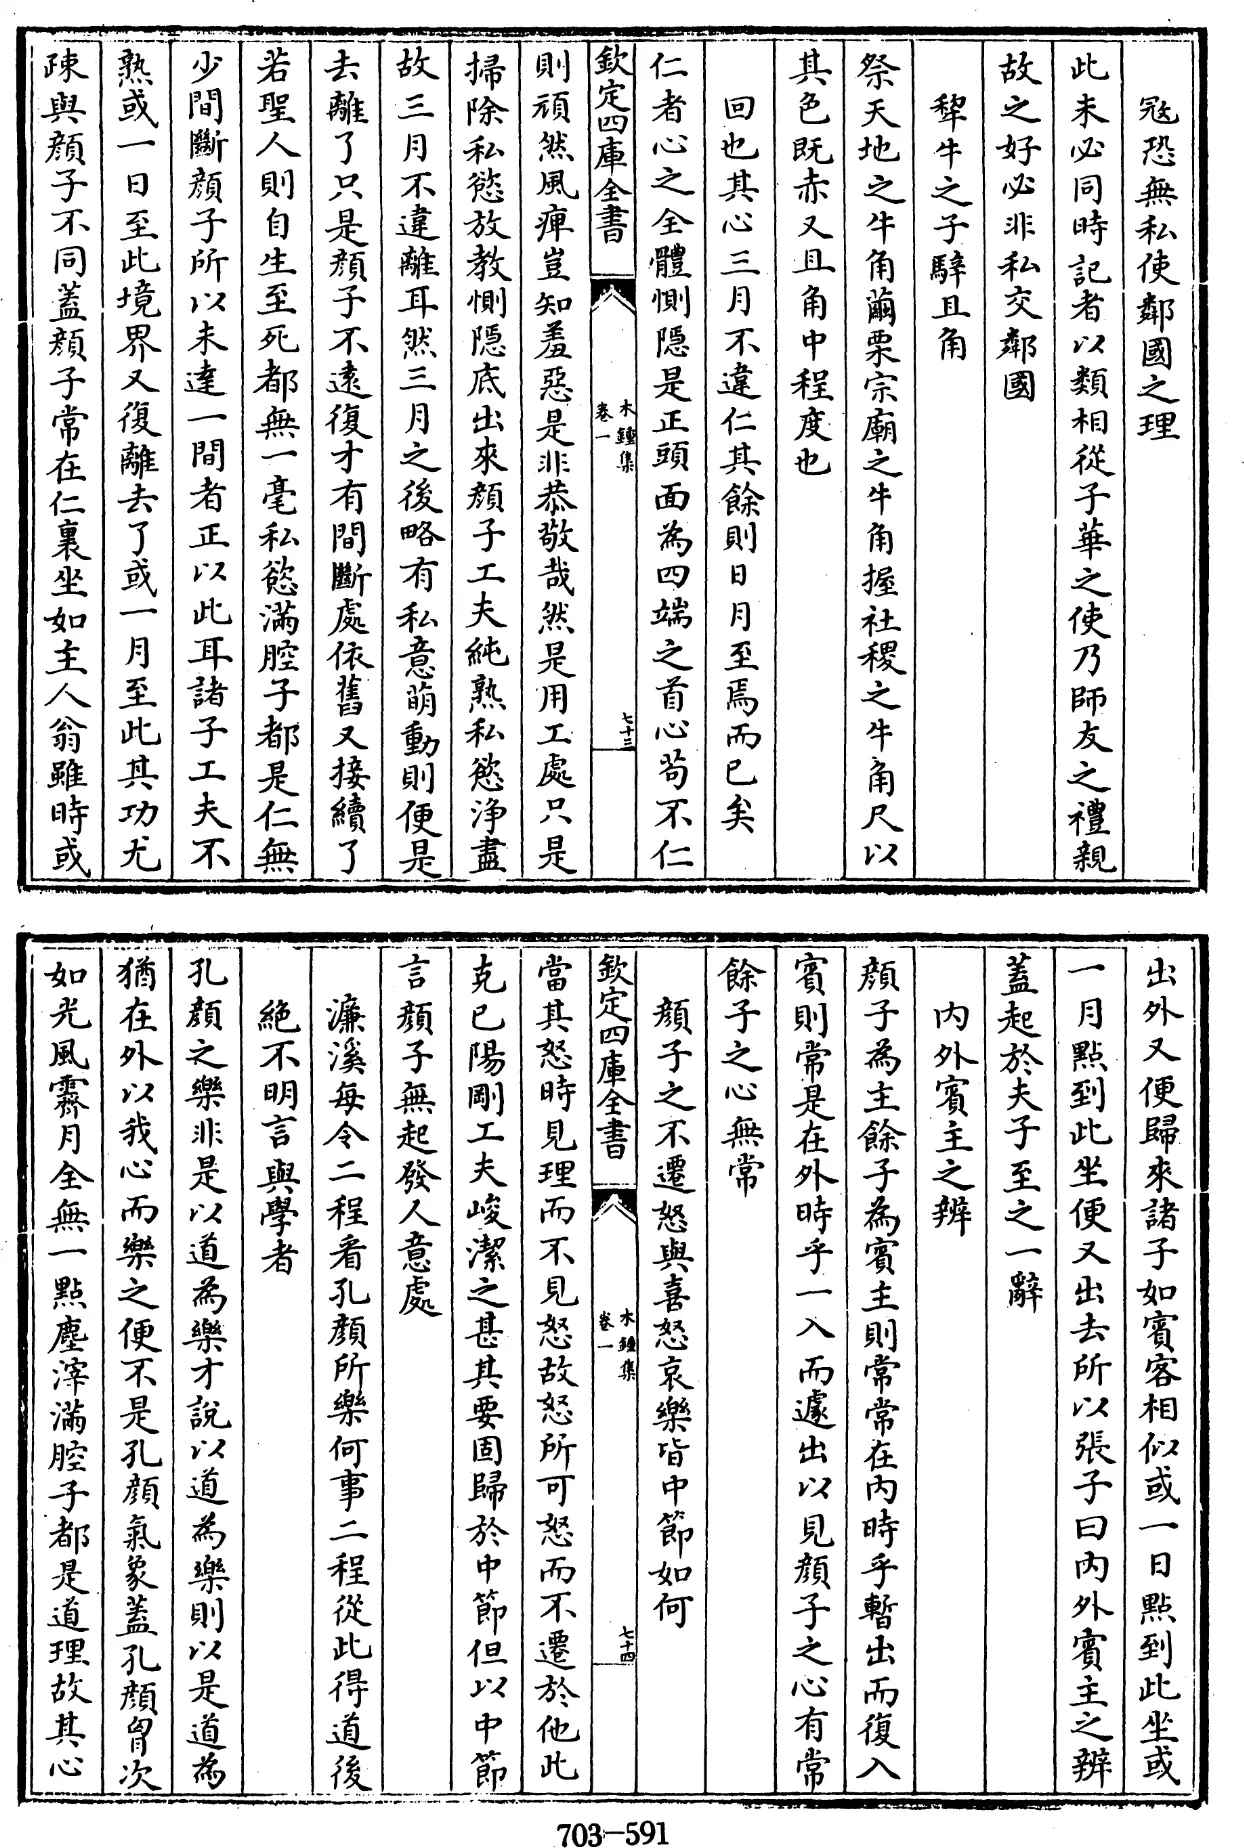 冦恐無私使鄰國之理
此未必同時記者以類相從子華之使乃師友之禮親
故之好必非私交鄰國
犂牛之子騂且角
祭天地之牛角繭栗宗廟之牛角握社稷之牛角尺以
其色既赤又且角中程度也
回也其心三月不違仁其餘則日月至焉而已矣
仁者心之全體惻隱是正頭面為四端之首心茍不仁
欽定四庫全書
木鍾集
卷一
七十三
則頑然風痺豈知羞惡是非恭敬哉然是用工處只是
掃除私慾放教惻隱底出來顔子工夫純熟私慾浄盡
故三月不違離耳然三月之後略有私意萌動則便是
去離了只是顔子不逺復才有間斷處依舊又接續了
若聖人則自生至死都無一毫私慾滿腔子都是仁無
少間斷顔子所以未達一間者正以此耳諸子工夫不
熟或一日至此境界又復離去了或一月至此其功尤
疎與顔子不同蓋顔子常在仁裏坐如主人翁雖時或
出外又便歸來諸子如賓客相似或一日點到此坐或
一月點到此坐便又出去所以張子曰内外賓主之辨
蓋起於夫子至之一辭
内外賓主之辨
顔子為主餘子為賓主則常常在内時乎暫出而復入
賓則常是在外時乎一入而遽出以見顔子之心有常
餘子之心無常
顔子之不遷怒與喜怒哀樂皆中節如何
欽定四庫全書
木鍾集
卷一
七十四
當其怒時見理而不見怒故怒所可怒而不遷於他此
克已陽剛工夫峻潔之甚其要固歸於中節但以中節
言顔子無起發人意處
濂溪每令二程看孔顔所樂何事二程從此得道後
絶不明言與學者
孔顔之樂非是以道為樂才說以道為樂則以是道為
猶在外以我心而樂之便不是孔顔氣象蓋孔顔胷次
如光風霽月全無一點塵滓滿腔子都是道理故其心
703-591